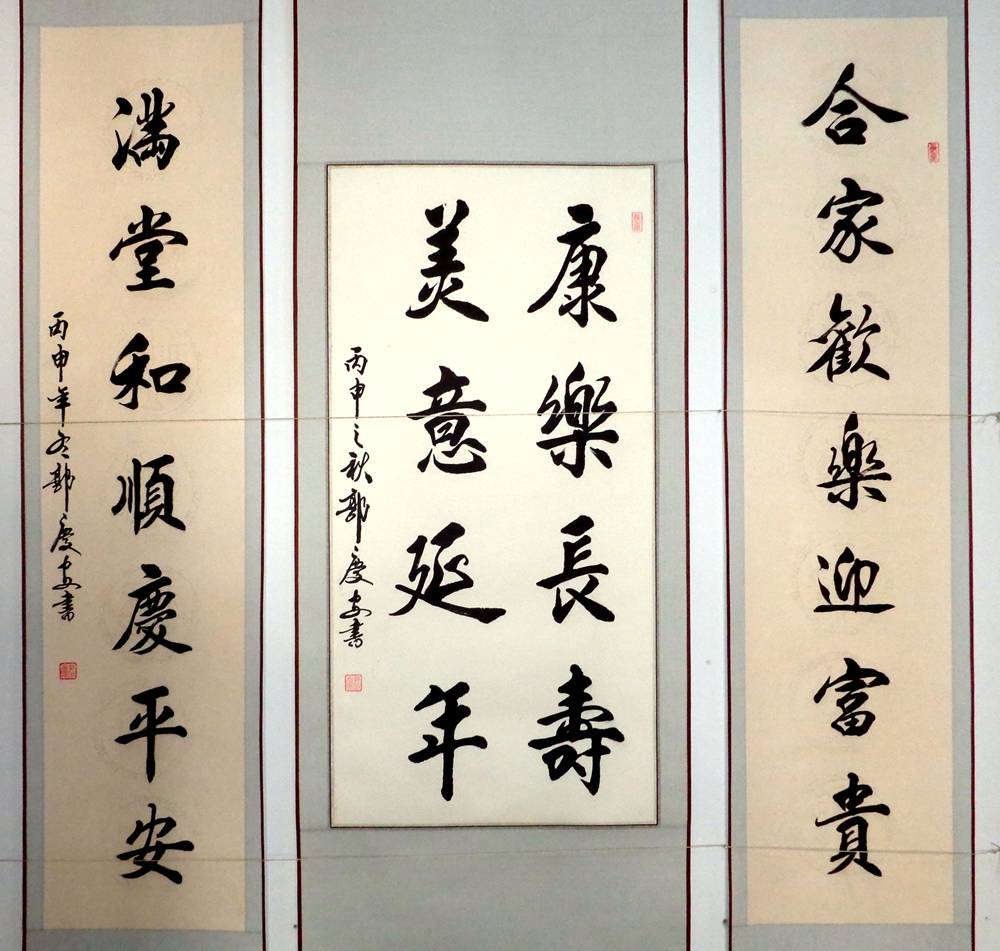 合家歡樂迎富貴
康樂長壽
美意延年
丙申之秋鄭慶安書
滿堂和順慶平安
丙申年冬鄭慶安書